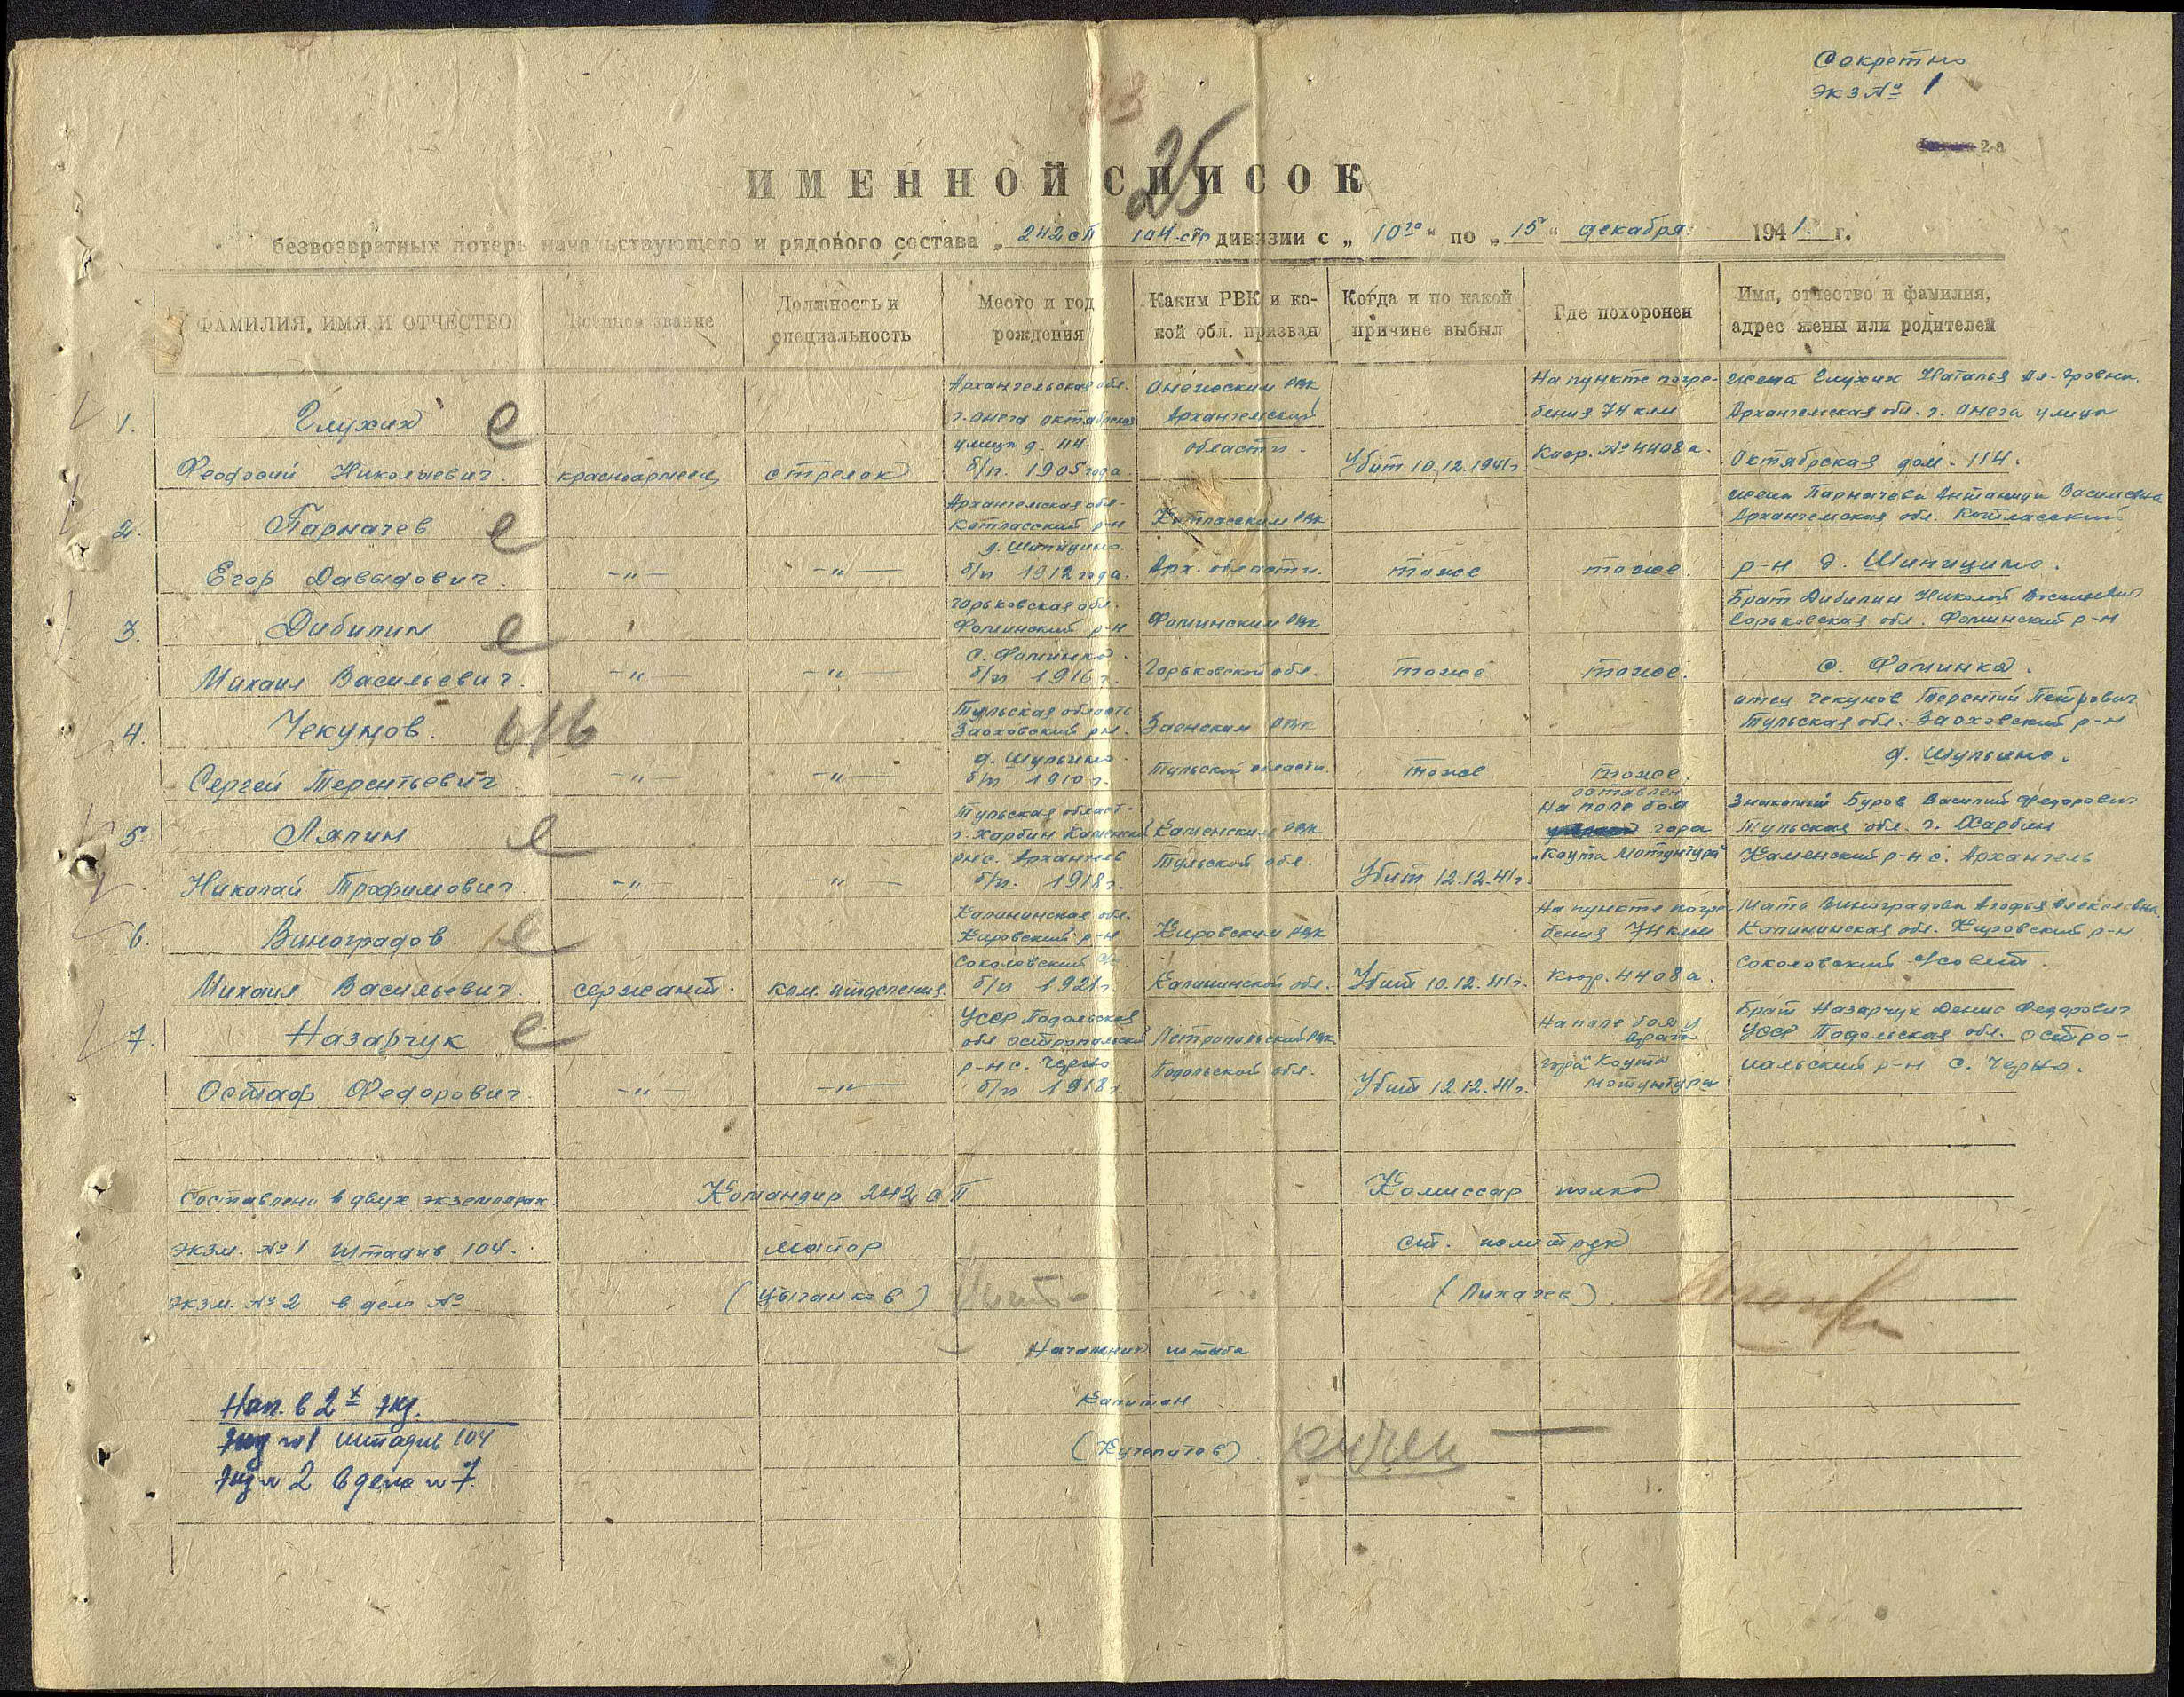 Сокретно
экз № 1
2-а
25
ИМЕННОЙ СПИСОК
безвозвратных потерь начальствующего и рядового состава „ 242 сп 104 стр дивизии с „ 10го “ по „ 15 “ декабря 1941 г.
ФАМИЛИЯ, ИМЯ И ОТЧЕСТВО
Военное звание
Должность и
специальность
Место и год
рождения
Каким РВК и ка-
кой обл. призван
Когда и по какой
причине выбыл
Где похоронен
Имя, отчество и фамилия,
адрес жены или родителей
1.
Глухих
Феодосий Николаевич.
красноармеец
стрелок
Архангельская обл.
г. Онега октябрская
улица д. 114.
б/п. 1905 года
Онежским рвк
Архангельский
области.
Убит 10.12.1941г.
На пункте погре-
бения 74 км
Коор. № 4408 а.
жена Глухих Наталья
Архангельская обл. г. Онега улица
Октябрская дом. 114.
2.
Парначев
Егор Давыдович.
–„–
–„–
Архангельская обл.
Котласский р-н
д. Шипицино.
б/п 1912 года.
Котласским рвк
Арх. области.
тоже
тоже.
жена Парначева Василевна
Архангельская обл. Котласский
р-н д. Шипицино.
3.
Дибилин
Михаил Васильевич.
–„–
–„–
Горьковская обл.
Фоминский р-н
с. Фоминка.
б/п 1916 г.
Фоминским рвк
Горьковской обл.
тоже
тоже.
Брат Дибилин Николай Васильевич
Горьковская обл. Фоминский р-н
с. Фоминка.
4.
Чекунов.
б/б
Сергей Терентьевич
–„–
–„–
Тульская область
Заохоский рн.
д. Шульгино.
б/п 1910 г.
Заокским рвк
Тульской области.
тоже
тоже.
отец Чекунов Терентий Петрович
Тульская обл. Заохский р-н
д. Шульгино.
5.
Ляпин
Николай Трофимович.
–„–
–„–
Тульская област.
г. Харбин Каменский
рн с. Архангель
б/п. 1918 г.
Каменским рвк
Тульской обл.
Убит 12.12.41г.
оставлен
На поле боя
гора
„Коута Мотунтура“
Знакомый Буров Василий Федорович
Тульская обл. г. Харбин
Каменский р-н с. Архангель
6.
Виноградов
Михаил Васильевич.
сержант.
ком. отделения.
Калининская обл.
Кировский р-н
Соколовский с/с
б/п 1921 г.
Кировским рвк
Калининской обл.
Убит 10.12.41г.
На пункте погре-
бения 74 км
Коор. 4408 а.
Мать Виноградова Агофья Алексевна.
Калининская обл. Кировский р-н
Соколовский с/совет.
7.
Назарчук
Остаф Федорович.
–„–
–„–
УССР Подольская
обл Остропольский
р-н с. Черно
б/п 1918 г.
Петропольский рвк
Подольской обл.
Убит 12.12.41г.
На поле боя у
гора „Коута
мотунтура
Брат Назарчук Денис Федорович
УССР Подольская обл. Остро-
польский р-н с. Черно.
Составлено в двух экземплярах.
экзм. № 1 штадив 104.
экзм. № 2 в дело №
Командир 242 сп
майор
(Цыганков)
Комиссар полка
ст. политрук
(Лихачев)
Начальник штаба
Капитан
(Кучепатов)
Нап. в 2х экз.
Экз № 1 штадив 104
Экз № 2 в дело № 7.